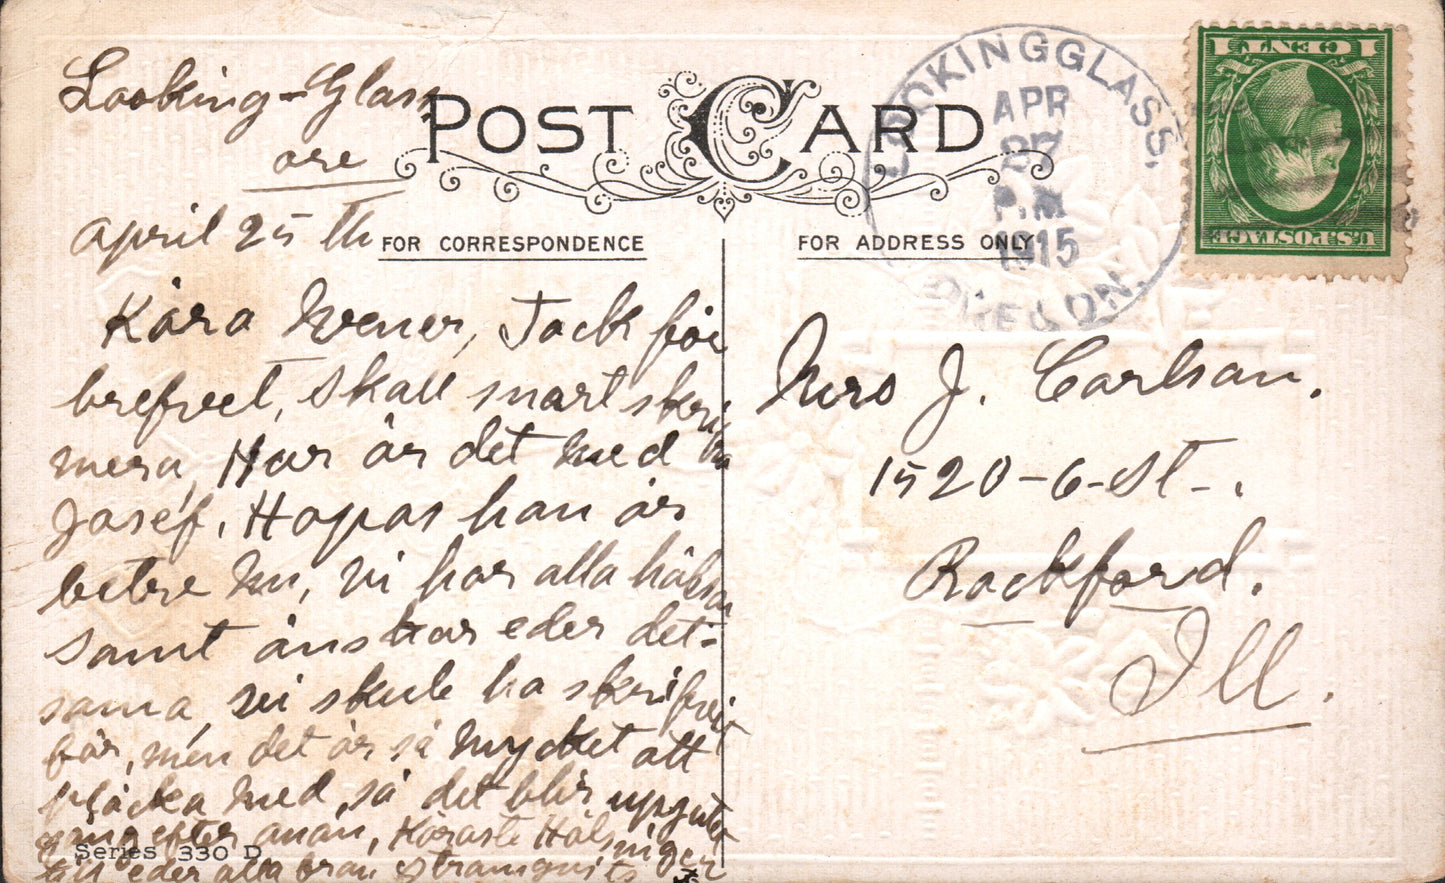 Looking-Glass
ore
april 25 th
POST CARD
FOR CORRESPONDENCE
FOR ADDRESS ONLY
LOOKINGGLASS,
APR
27
P.M
1915
OREGON.
1 CENT 1
U.S. POSTAGE
Kära Wener, Tack för
brefvet, skall snart skri
mera, Hur är det med
Josef, Hopas han är
betre nu, vi har alla hälsan
samt önskar eder det-
sama, vi skule ha skrifvit
för, men det är så mycket att
plåcka med, så det blir
gång efter anan, Käraste Hälsninger
till eder alla från
Mrs J. Carlson.
1520-6-St-.
Rockford.
Ill.
Series 330 D